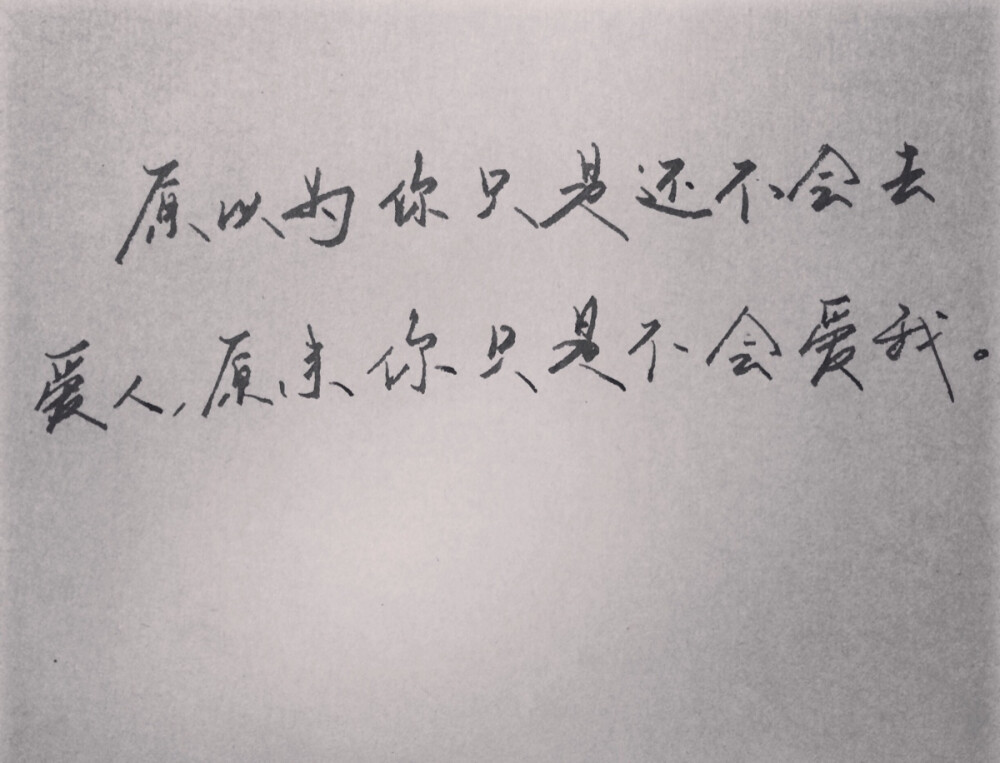 原以为你只是还不会去
爱人,原来你只是不会爱我。